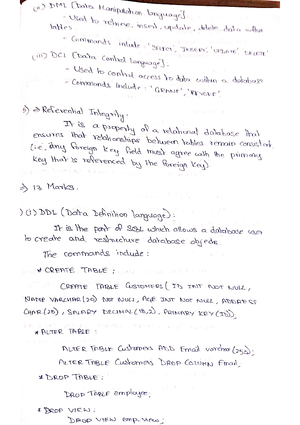 (ii) DML [Data Manipulation language].
- Used to retrieve, insert, update, delete data within
tables
- Commands include: 'SELECT', 'INSERT', 'UPDATE', 'DELETE'
(iii) DCL [Data Control language].
- Used to control access to data within a database
- Commands Include: 'GRANT', 'REVOKE'
⇒ Referential Integrity:
It is a property of a relational database that
ensures that relationships between tables remain consistent
(i.e, Any foreign key field must agree with the primary
key that is referenced by the foreign key).
13 Marks.
(i) DDL (Data Definition language):
It is the part of SQL which allows a database user
to create and restructure database objects.
The commands include:
* CREATE TABLE:
CREATE TABLE CUSTOMERS ( ID INT NOT NULL,
NAME VARCHAR(20) NOT NULL, AGE INT NOT NULL, ADDRESS
CHAR(25), SALARY DECIMAL(18,2), PRIMARY KEY(ID));
* ALTER TABLE:
ALTER TABLE Customers ADD Email varchar(255);
ALTER TABLE Customers DROP COLUMN Email;
* DROP TABLE:
DROP TABLE employee;
* DROP VIEW:
DROP VIEW emp_view;